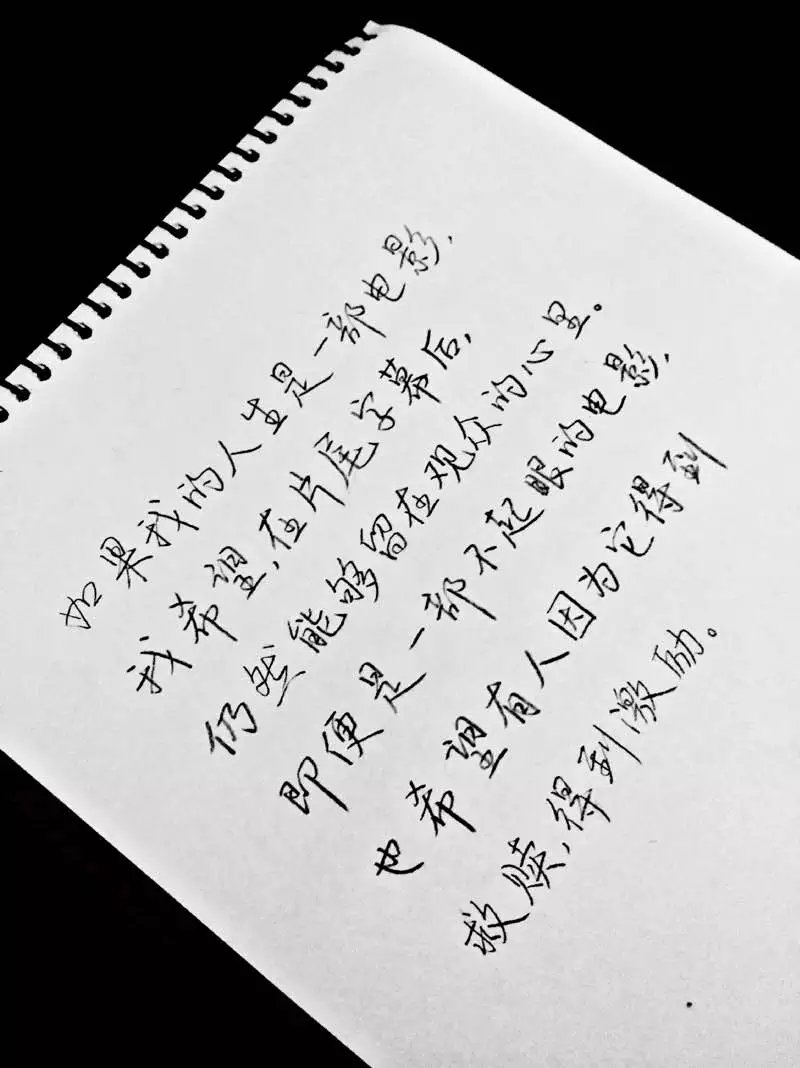 如果我的人生是一部电影,
我希望,在片尾字幕后,
仍然能够留在观众的心里。
即便是一部不起眼的电影,
也希望有人因为它得到
救赎,得到激励。